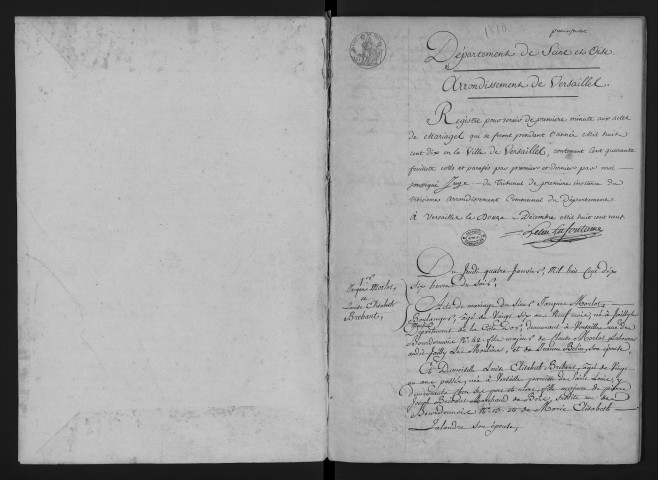 1810.
premier feuillet
Département de Seine et Oise
Arrondissement de Versailles.
Registre pour servir de premiere minute aux actes
de Mariages qui se feront pendant l'année mil huit
cent dix en la Ville de Versailles, contenant Cent quarante
feuillets cotés et parafés par premier et dernier par moi
soussigné Juge du Tribunal de première instance du
arrondissement Communal du Département
à Versailles le Douze Décembre mil huit cent neuf
Du Jeudi quatre Janvier, Mil huit Cent dix
Six heures du Soir,
1re
Jacques Morlot,
et
Louise Elisabeth
Brebant,
Acte de mariage du Sieur Jacques Morlot
Boulanger, âgé de Vingt Six ans Neuf mois, né à
Département de la Côte d'or, demeurant à Versailles rue de
No. 42. fils majeur de Morlot
et de Jeanne Belin, son épouse,
Et Demoiselle Louise Elisabeth Brebant, âgée de Vingt
un ans passés, née à Versailles paroisse de Saint Louis, y
demeurante chez ses père et mère, fille majeure de
Joseph Brebant Marchand de Bois, rue de
No. et de Marie Elisabeth
Lalandre son épouse,